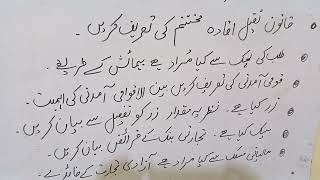 قانون تقلیل افادہ مختتم کی تعریف کریں۔
طلب کی لچک سے کیا مُراد ہے پیمائش کے طریقے۔
قومی آمدنی کی تعریف کریں بین الاقوامی آمدنی کی اہمیت۔
زر کیا ہے۔ نظریہ مقدار زر کو تفصیل سے بیان کریں۔
بینک کیا ہے۔ تجارتی بینک کے فرائض بیان کریں۔
مالیاتی مسلک سے کیا مراد ہے آزادی تجارت کے فائدے۔